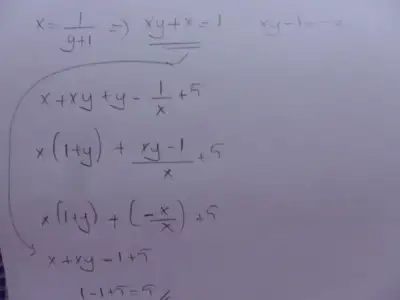 x = 1/(y+1) => xy+x=1 xy-1=-x
x+xy+y - 1/x +5
x(1+y) + (xy-1)/x +5
x(1+y) + (-x/x) +5
x+xy-1+5
1-1+5=5//